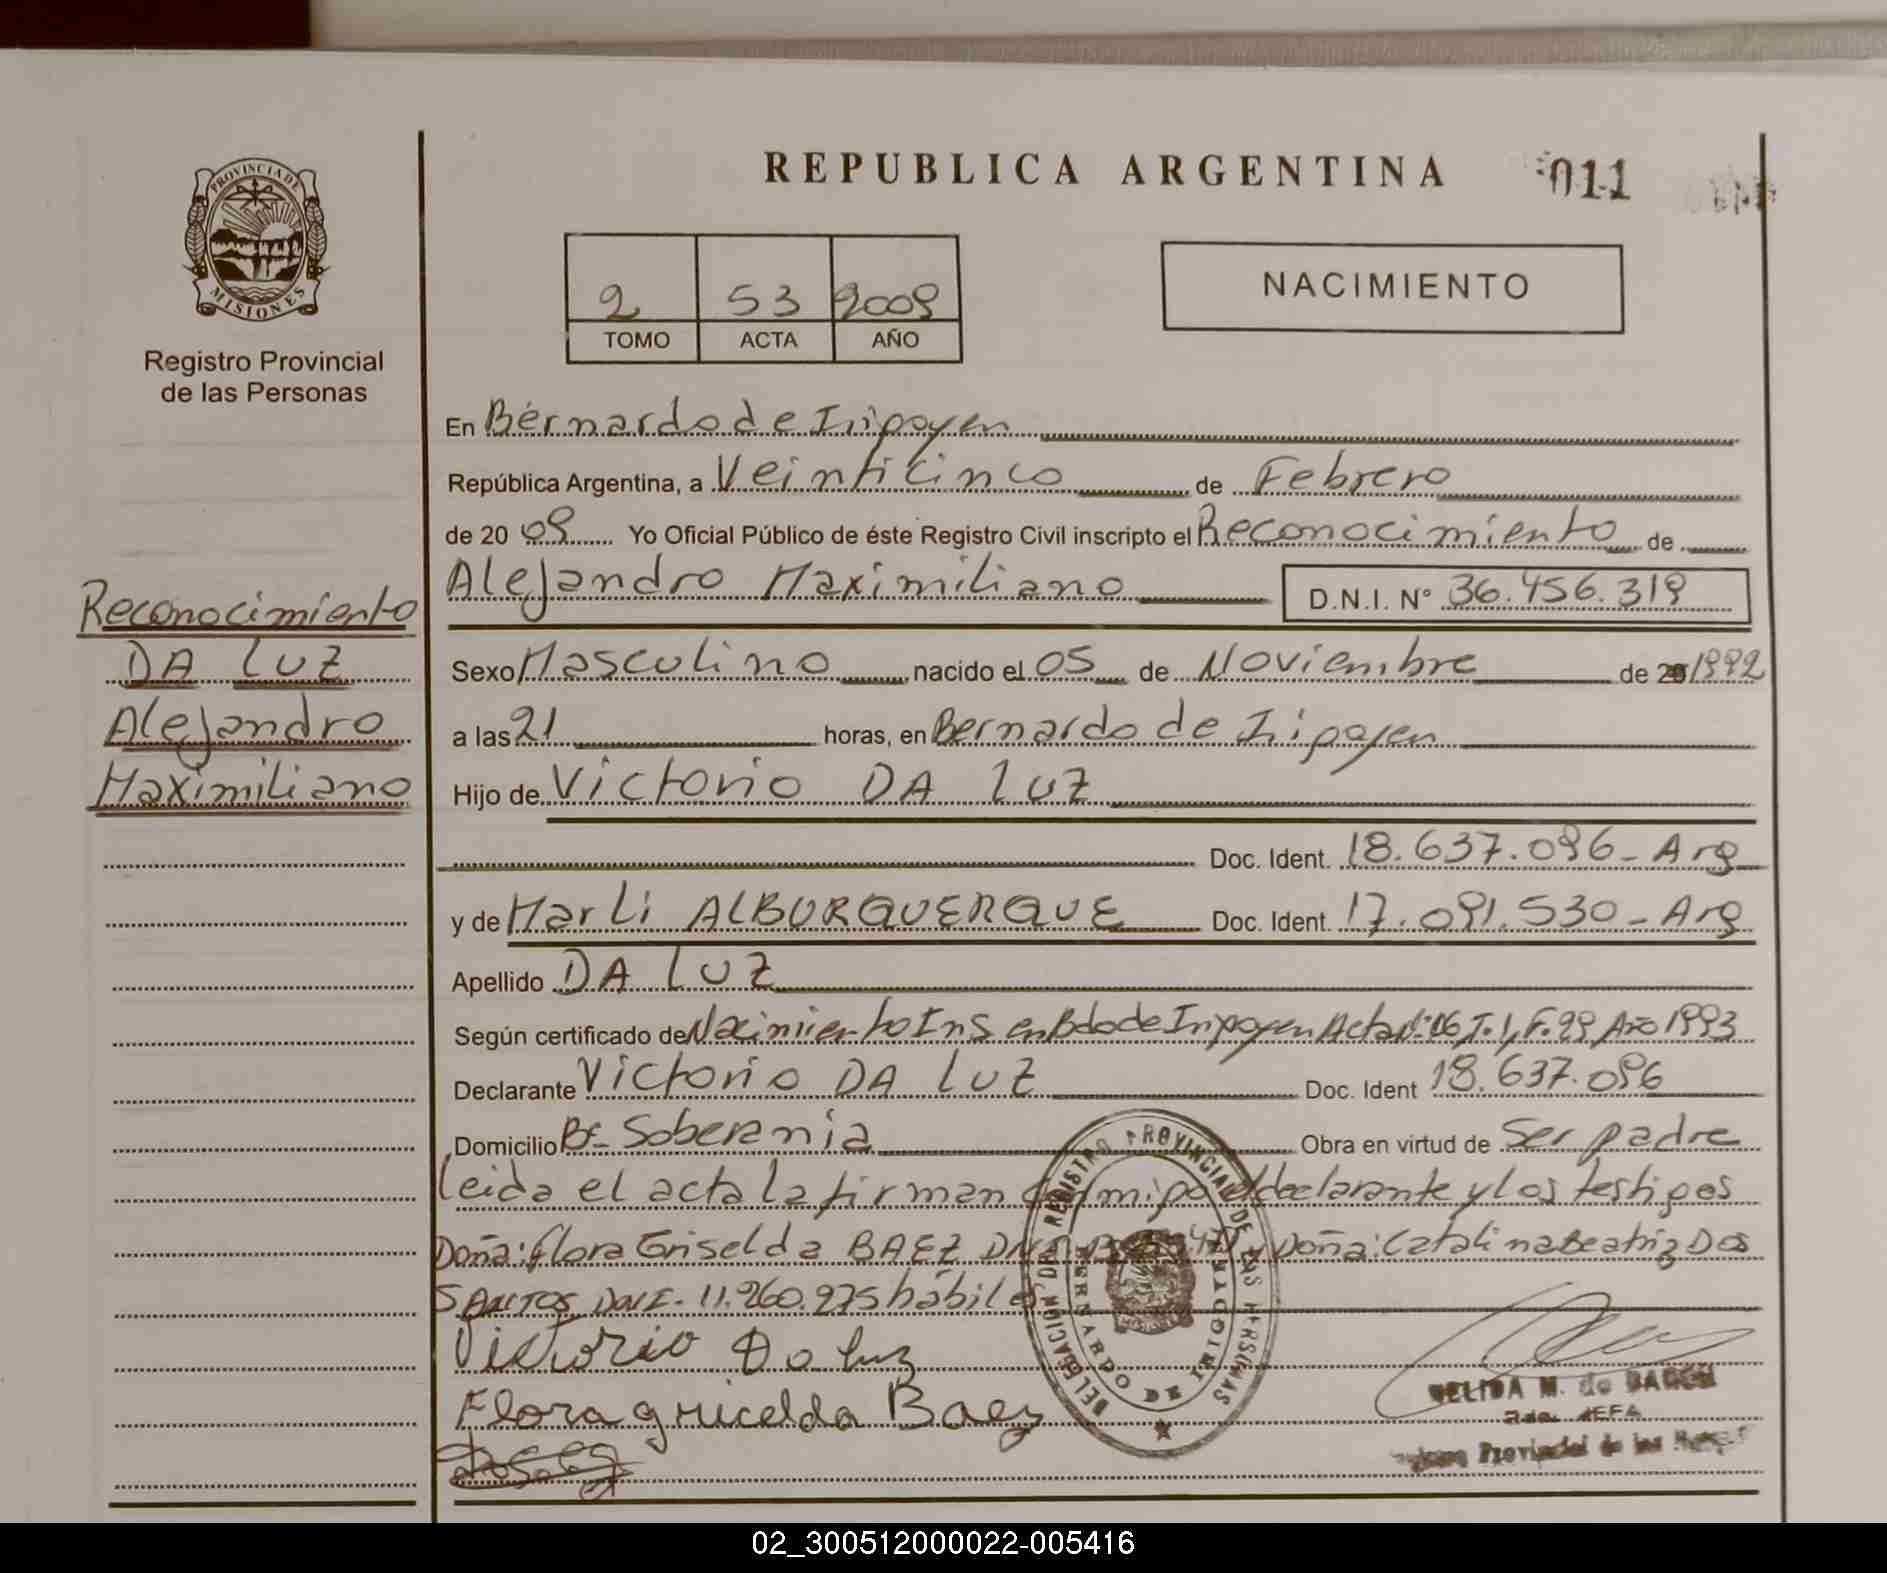 REPUBLICA ARGENTINA 011
PROVINCIA DE
MISIONES
Registro Provincial
de las Personas
2 53 2009
TOMO ACTA AÑO
NACIMIENTO
En Bernardo de Irigoyen
República Argentina, a Veinticinco de Febrero
de 20 09 Yo Oficial Público de éste Registro Civil inscripto el Reconocimiento de
Alejandro Maximiliano D.N.I. N° 36.456.319
Reconocimiento
DA LUZ
Alejandro
Maximiliano
Sexo Masculino nacido el 05 de Noviembre de 1992
a las 21 horas, en Bernardo de Irigoyen
Hijo de Victorio DA LUZ
Doc. Ident. 18.637.096 - Arg
y de Marli ALBURQUERQUE Doc. Ident. 17.091.530 - Arg
Apellido DA LUZ
Según certificado de Nacimiento Ins en Bdo de Irigoyen Acta N° 16 T. 1, F. 29 Año 1993
Declarante Victorio DA LUZ Doc. Ident 18.637.096
Domicilio Bº Soberania Obra en virtud de Ser padre
Leida el acta la firman el declarante y los testigos
Doña: Flora Griselda BAEZ y Doña: Catalina Beatriz Dos
SANTOS DNI. 11.260.975 hábiles
Victorio Da luz
Flora gricelda Baez
DELEGACION DEL REGISTRO PROVINCIAL DE LAS PERSONAS
BERNARDO DE IRIGOYEN
M. de
JEFA
Provincial de las
02_300512000022-005416